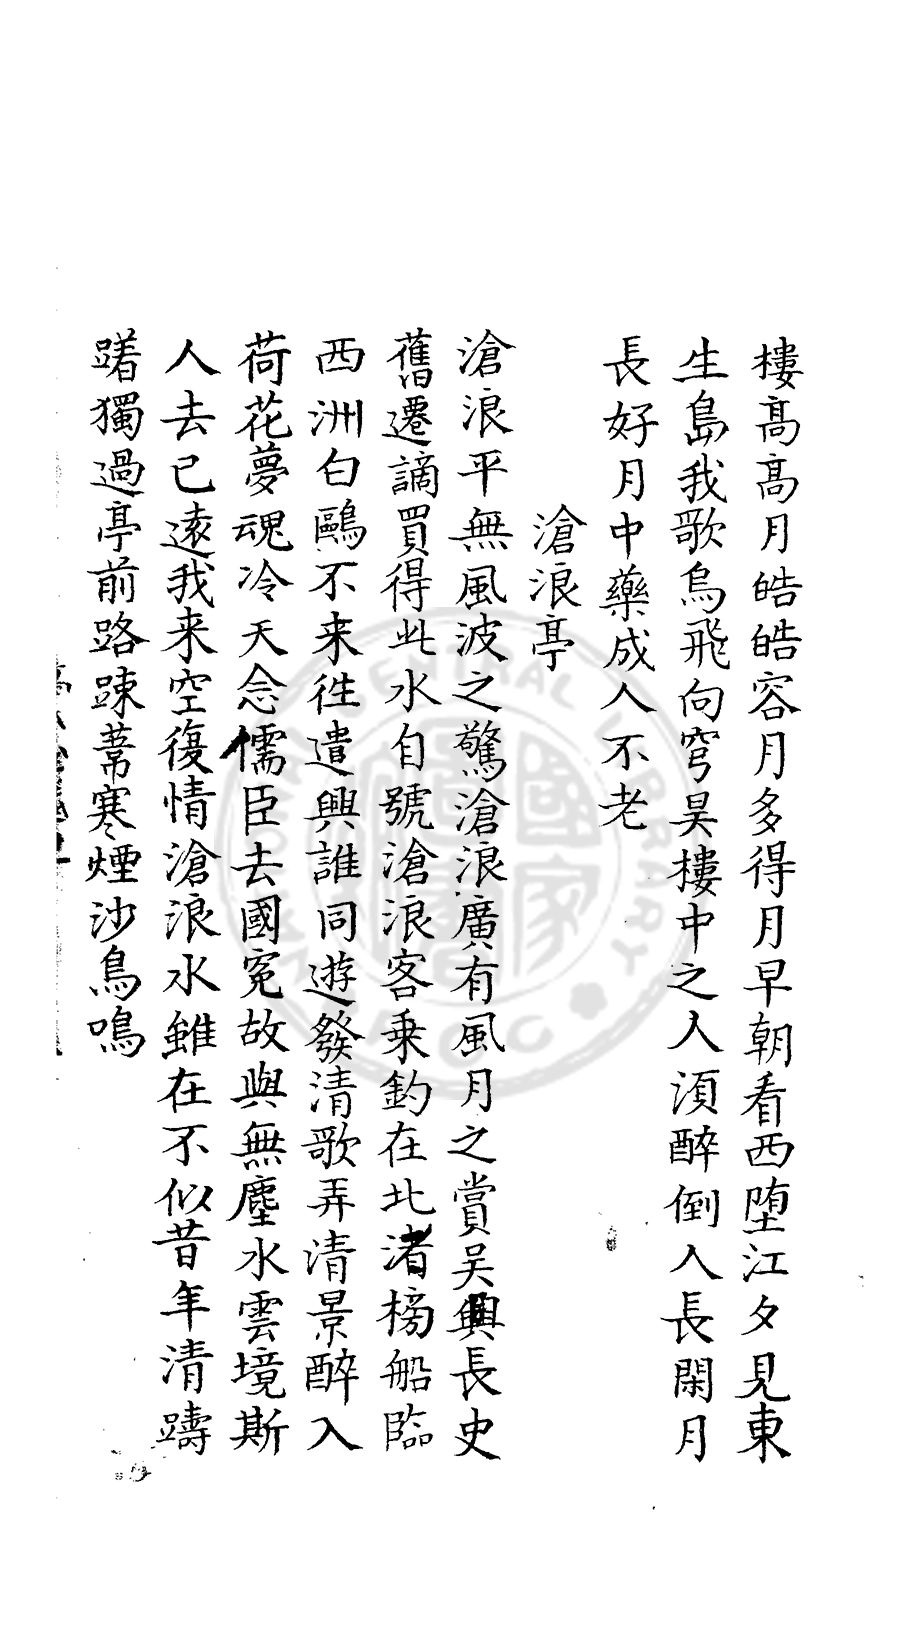 樓髙髙月皓皓容月多得月早朝看西堕江夕見東
生島我歌烏飛向穹昊樓中之人湏醉倒人長閑月
長好月中藥成人不老
滄浪亭
滄浪平無風波之驚滄浪廣有風月之賞吳興長史
舊遷謫買得此水自號滄浪客乗釣在北渚榜船臨
西洲白鷗不来徃遣興誰同遊發清歌弄清景醉入
荷花夢魂冷天念儒臣去國寃故與無塵水雲境斯
人去已逺我来空復情滄浪水雖在不似昔年清躊
躇獨過亭前路踈葦寒煙沙鳥鳴
NATIONAL CENTRAL LIBRARY R.O.C.
國家圖書館